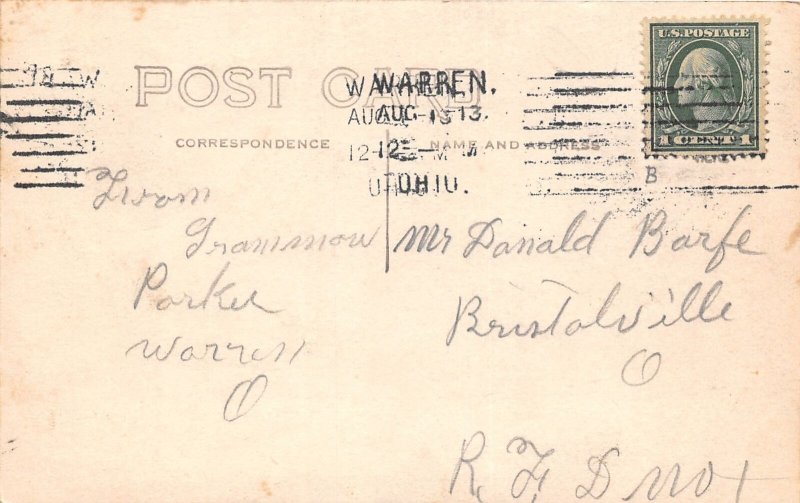 U.S. POSTAGE
1 CENT 1
POST CARD
WARREN.
AUG 13
12 — M
OHIO.
CORRESPONDENCE
NAME AND ADDRESS
B
From
Grammow
Parker
Warren
O
Mr Donald Barfe
Bristolville
O
R. F. D no 1